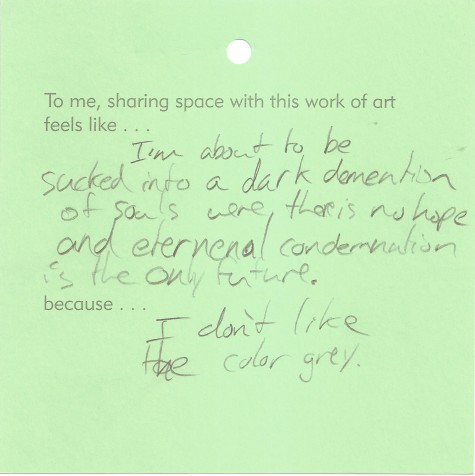 To me, sharing space with this work of art
feels like . . .
I'm about to be
sucked into a dark demention
of souls were, there is no hope
and eternenal condemnation
is the only future.
because . . .
I don't like
the color grey.